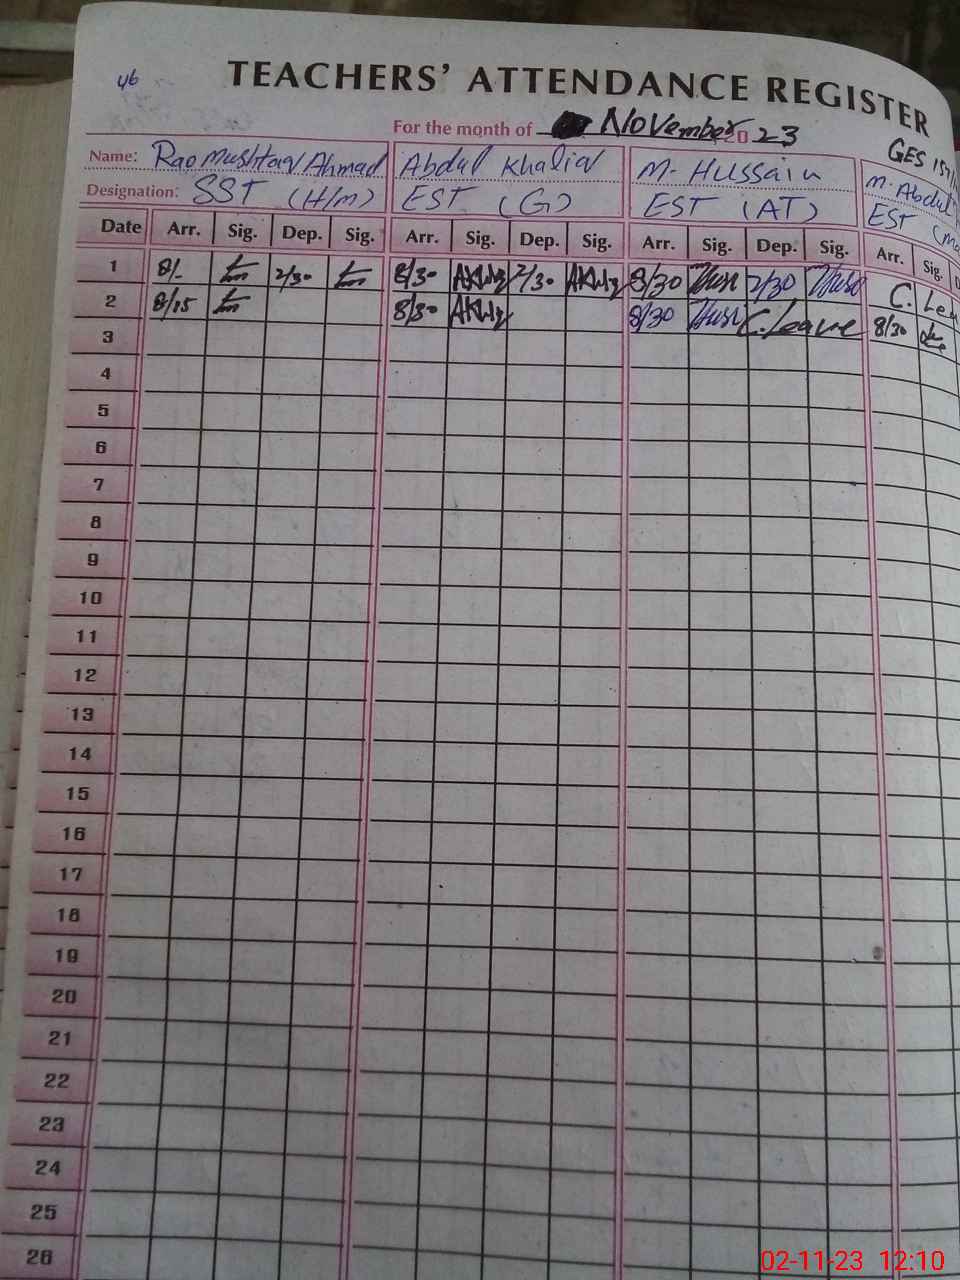 46
TEACHERS' ATTENDANCE REGISTER
For the month of November 2023
GES
Name: Rao Mushtaq Ahmad Abdul Khaliq M. Hussain M. Abdul
Designation: SST (H/m) EST (G) EST (AT) EST
Date Arr. Sig. Dep. Sig. Arr. Sig. Dep. Sig. Arr. Sig. Dep. Sig. Arr. Sig.
1 8/- 2/30 8/30 2/30 8/30 2/30 C. Lea
2 8/15 8/30 8/30 C. Leave 8/30
3
4
5
6
7
8
9
10
11
12
13
14
15
16
17
18
19
20
21
22
23
24
25
26
02-11-23 12:10